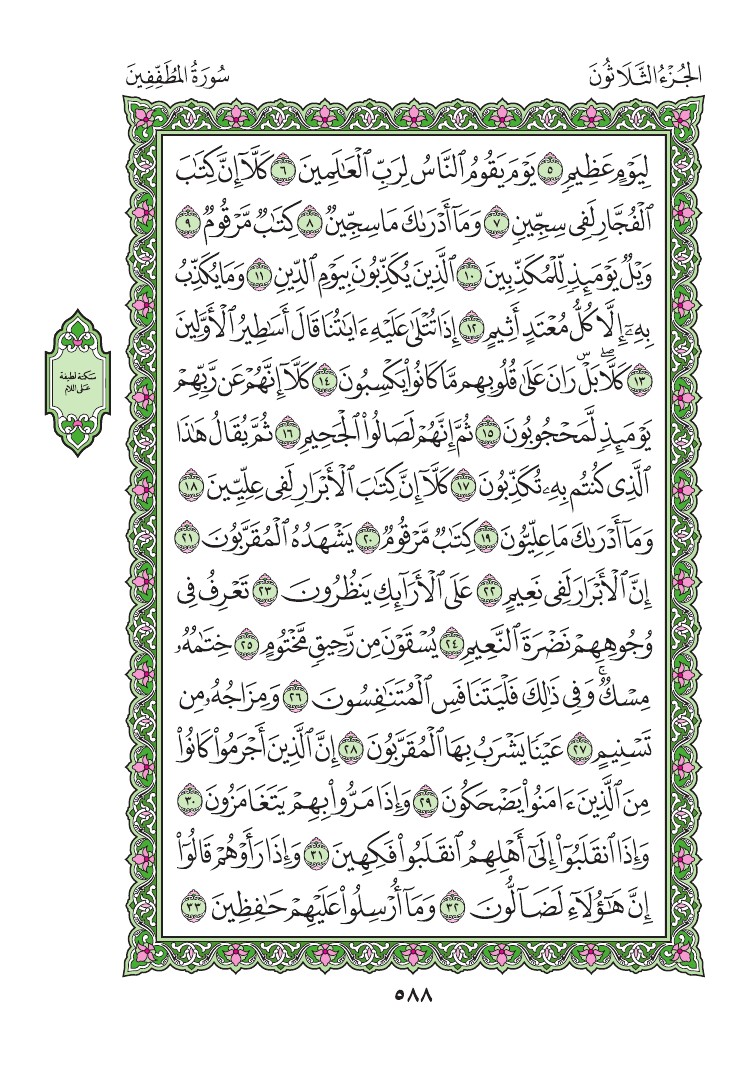 الجُزْءُ الثَّلَاثُونَ
سُورَةُ المُطَفِّفِينَ
لِيَوْمٍ عَظِيمٍ ٥ يَوْمَ يَقُومُ ٱلنَّاسُ لِرَبِّ ٱلْعَـٰلَمِينَ ٦ كَلَّآ إِنَّ كِتَـٰبَ
ٱلْفُجَّارِ لَفِى سِجِّينٍ ٧ وَمَآ أَدْرَىٰكَ مَا سِجِّينٌ ٨ كِتَـٰبٌ مَّرْقُومٌ ٩
وَيْلٌ يَوْمَئِذٍ لِّلْمُكَذِّبِينَ ١٠ ٱلَّذِينَ يُكَذِّبُونَ بِيَوْمِ ٱلدِّينِ ١١ وَمَا يُكَذِّبُ
بِهِۦٓ إِلَّا كُلُّ مُعْتَدٍ أَثِيمٍ ١٢ إِذَا تُتْلَىٰ عَلَيْهِ ءَايَـٰتُنَا قَالَ أَسَـٰطِيرُ ٱلْأَوَّلِينَ
١٣ كَلَّا ۖ بَلْ ۜ رَانَ عَلَىٰ قُلُوبِهِم مَّا كَانُوا۟ يَكْسِبُونَ ١٤ كَلَّآ إِنَّهُمْ عَن رَّبِّهِمْ
يَوْمَئِذٍ لَّمَحْجُوبُونَ ١٥ ثُمَّ إِنَّهُمْ لَصَالُوا۟ ٱلْجَحِيمِ ١٦ ثُمَّ يُقَالُ هَـٰذَا
ٱلَّذِى كُنتُم بِهِۦ تُكَذِّبُونَ ١٧ كَلَّآ إِنَّ كِتَـٰبَ ٱلْأَبْرَارِ لَفِى عِلِّيِّينَ ١٨
وَمَآ أَدْرَىٰكَ مَا عِلِّيُّونَ ١٩ كِتَـٰبٌ مَّرْقُومٌ ٢٠ يَشْهَدُهُ ٱلْمُقَرَّبُونَ ٢١
إِنَّ ٱلْأَبْرَارَ لَفِى نَعِيمٍ ٢٢ عَلَى ٱلْأَرَآئِكِ يَنظُرُونَ ٢٣ تَعْرِفُ فِى
وُجُوهِهِمْ نَضْرَةَ ٱلنَّعِيمِ ٢٤ يُسْقَوْنَ مِن رَّحِيقٍ مَّخْتُومٍ ٢٥ خِتَـٰمُهُۥ
مِسْكٌ ۚ وَفِى ذَٰلِكَ فَلْيَتَنَافَسِ ٱلْمُتَنَـٰفِسُونَ ٢٦ وَمِزَاجُهُۥ مِن
تَسْنِيمٍ ٢٧ عَيْنًا يَشْرَبُ بِهَا ٱلْمُقَرَّبُونَ ٢٨ إِنَّ ٱلَّذِينَ أَجْرَمُوا۟ كَانُوا۟
مِنَ ٱلَّذِينَ ءَامَنُوا۟ يَضْحَكُونَ ٢٩ وَإِذَا مَرُّوا۟ بِهِمْ يَتَغَامَزُونَ ٣٠
وَإِذَا ٱنقَلَبُوٓا۟ إِلَىٰٓ أَهْلِهِمُ ٱنقَلَبُوا۟ فَكِهِينَ ٣١ وَإِذَا رَأَوْهُمْ قَالُوٓا۟
إِنَّ هَـٰٓؤُلَآءِ لَضَآلُّونَ ٣٢ وَمَآ أُرْسِلُوا۟ عَلَيْهِمْ حَـٰفِظِينَ ٣٣
سكتة لطيفة
على اللام
٥٨٨